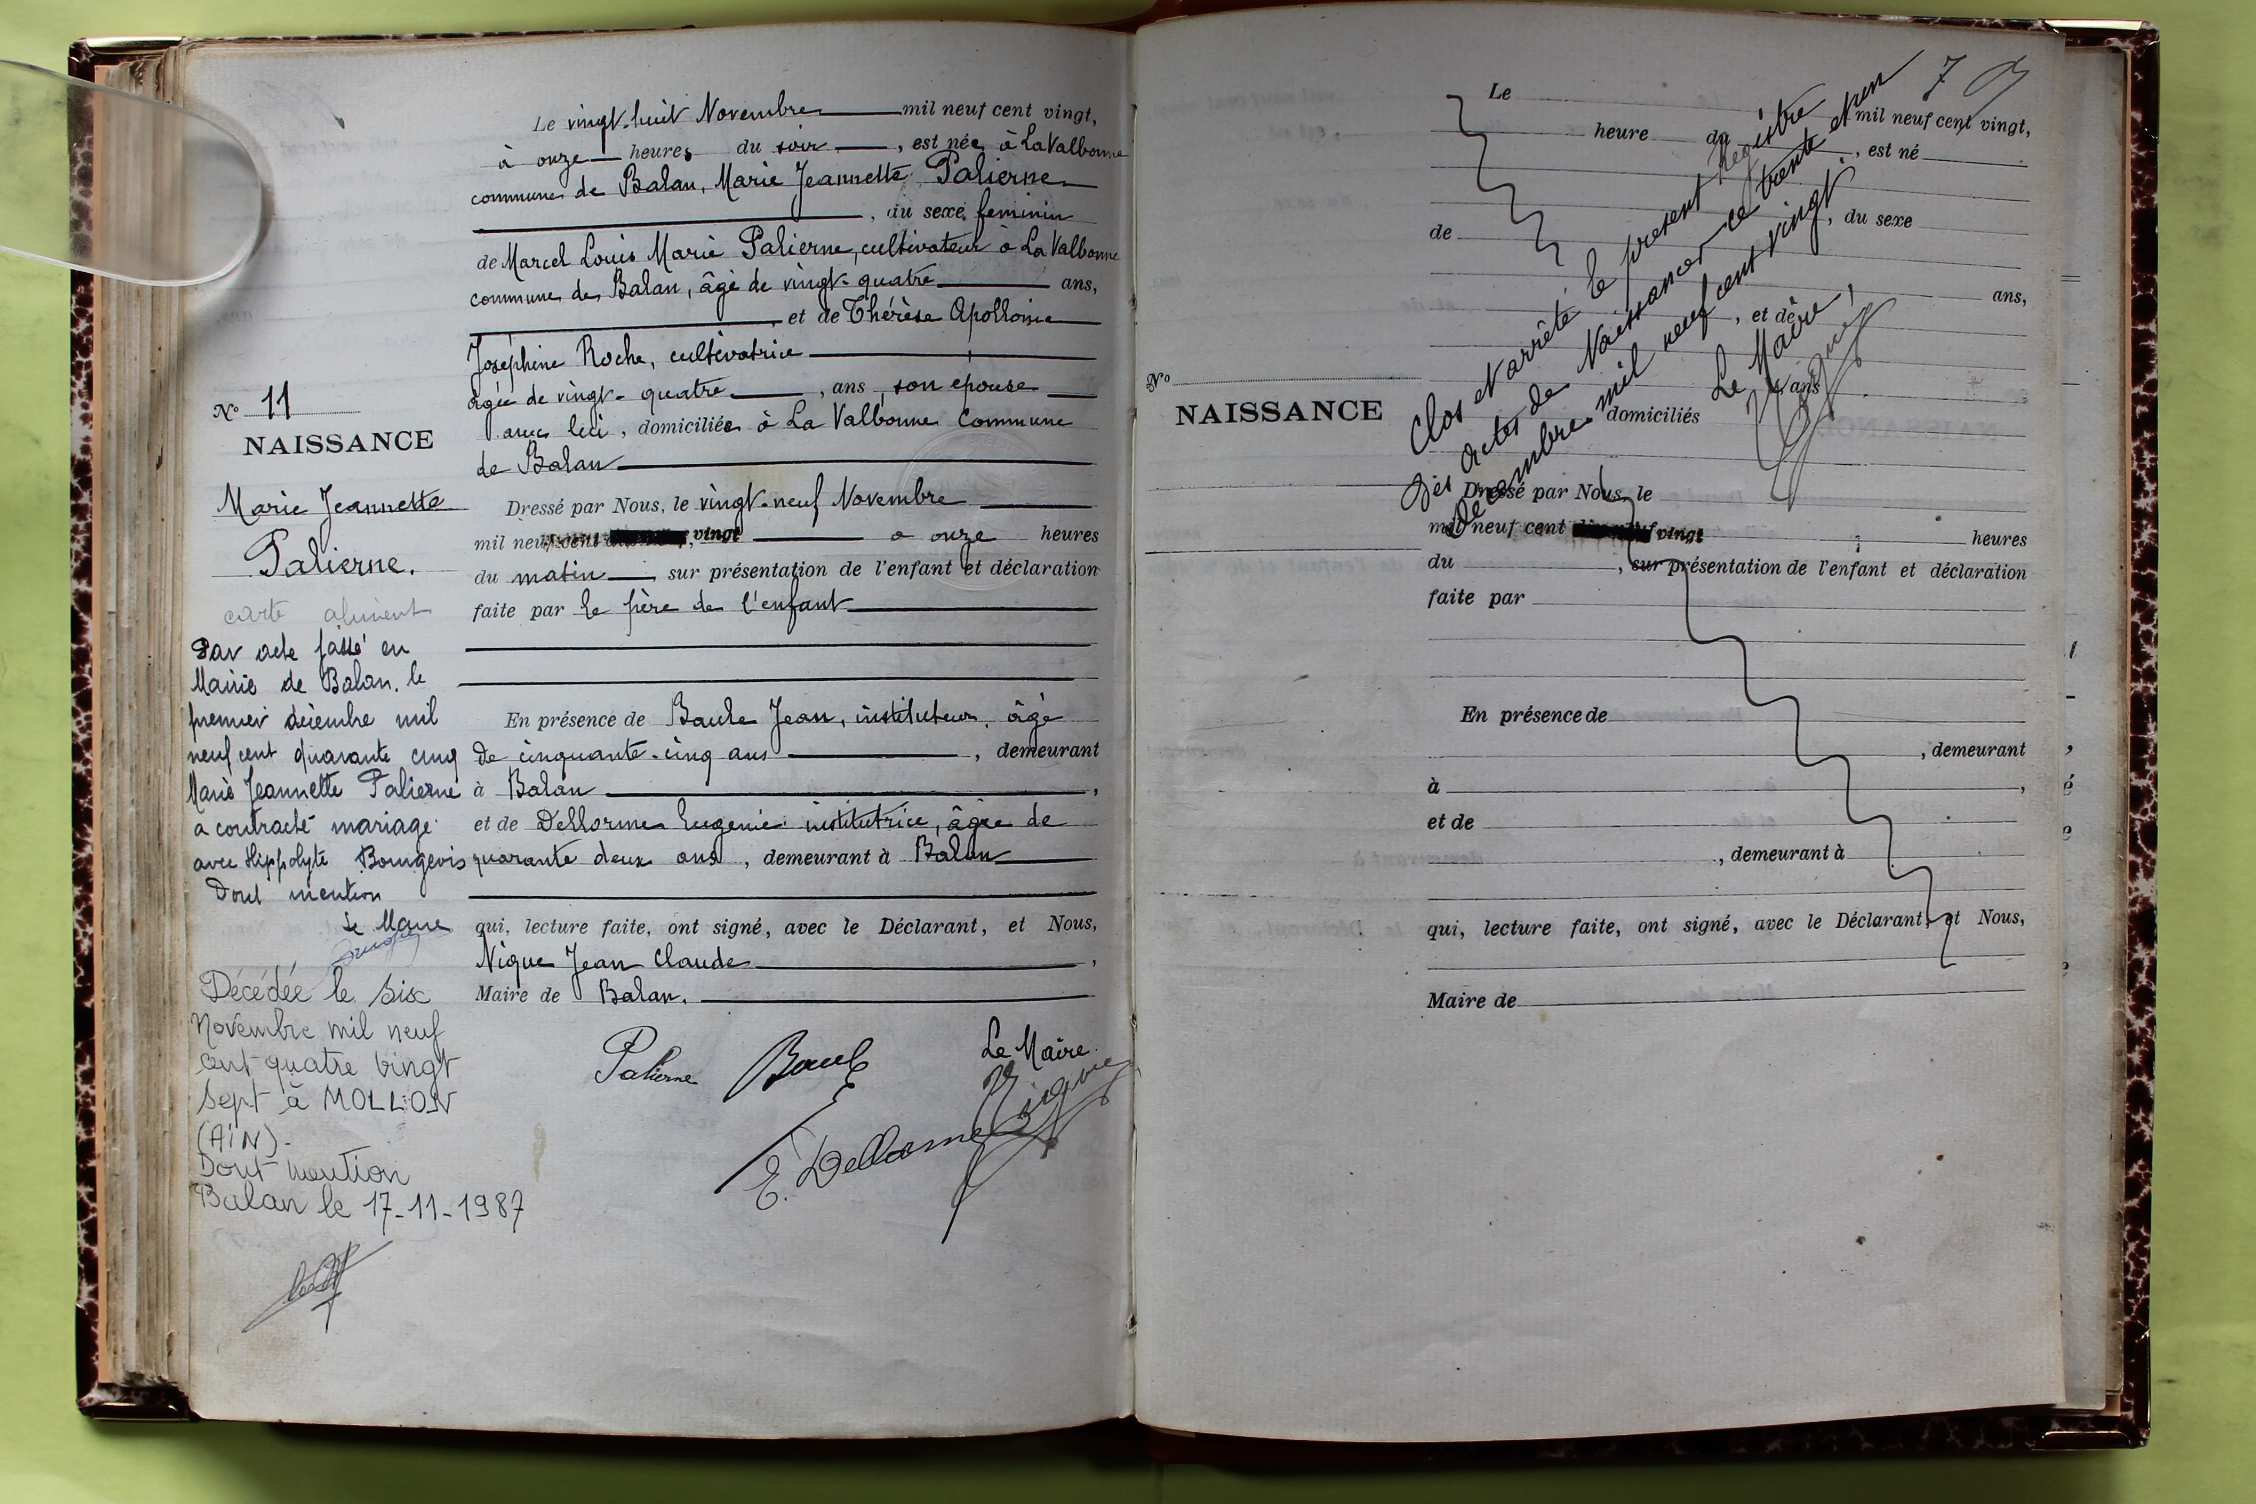 Le vingt-huit Novembre mil neuf cent vingt,
à onze heures du soir, est née à La Valbonne
commune de Balan, Marie Jeannette Palierne
, du sexe féminin
de Marcel Louis Marie Palierne, cultivateur à La Valbonne
commune de Balan, âgé de vingt-quatre ans,
, et de Thérèse Apollonie
Joséphine Roche, cultivatrice
âgée de vingt-quatre, ans, son epouse
avec lui, domiciliés à La Valbonne Commune
de Balan
Dressé par Nous, le vingt-neuf Novembre
mil neuf cent vingt à onze heures
du matin, sur présentation de l'enfant et déclaration
faite par le père de l'enfant
En présence de Baule Jean, instituteur, âgé
de cinquante-cinq ans, demeurant
à Balan,
et de Dellorme Eugenie institutrice, âgée de
quarante deux ans, demeurant à Balan
qui, lecture faite, ont signé, avec le Déclarant, et Nous,
Nique Jean Claude,
Maire de Balan.
Palierne Baule Le Maire
E. Dellorme Nique
N° 11
NAISSANCE
Marie Jeannette
Palierne.
carte aliment
Par acte passé en
Mairie de Balan, le
premier décembre mil
neuf cent quarante cinq
Marie Jeannette Palierne
a contracté mariage
avec Hippolyte Bourgeois
Dont mention
Le Maire
Décédée le six
Novembre mil neuf
cent quatre vingt
sept à MOLLON
(AIN).
Dont mention
Balan le 17-11-1987
7
Le mil neuf cent vingt,
heure du, est né
de, du sexe
ans,
, et de
ans
domiciliés
N°
NAISSANCE
Clos et arrêté le présent Registre
des actes de Naissances ce trente et un
décembre mil neuf cent vingt.
Le Maire,
Nique
Dressé par Nous, le
mil neuf cent vingt heures
du, sur présentation de l'enfant et déclaration
faite par
En présence de
, demeurant
à,
et de
, demeurant à
qui, lecture faite, ont signé, avec le Déclarant, et Nous,
Maire de